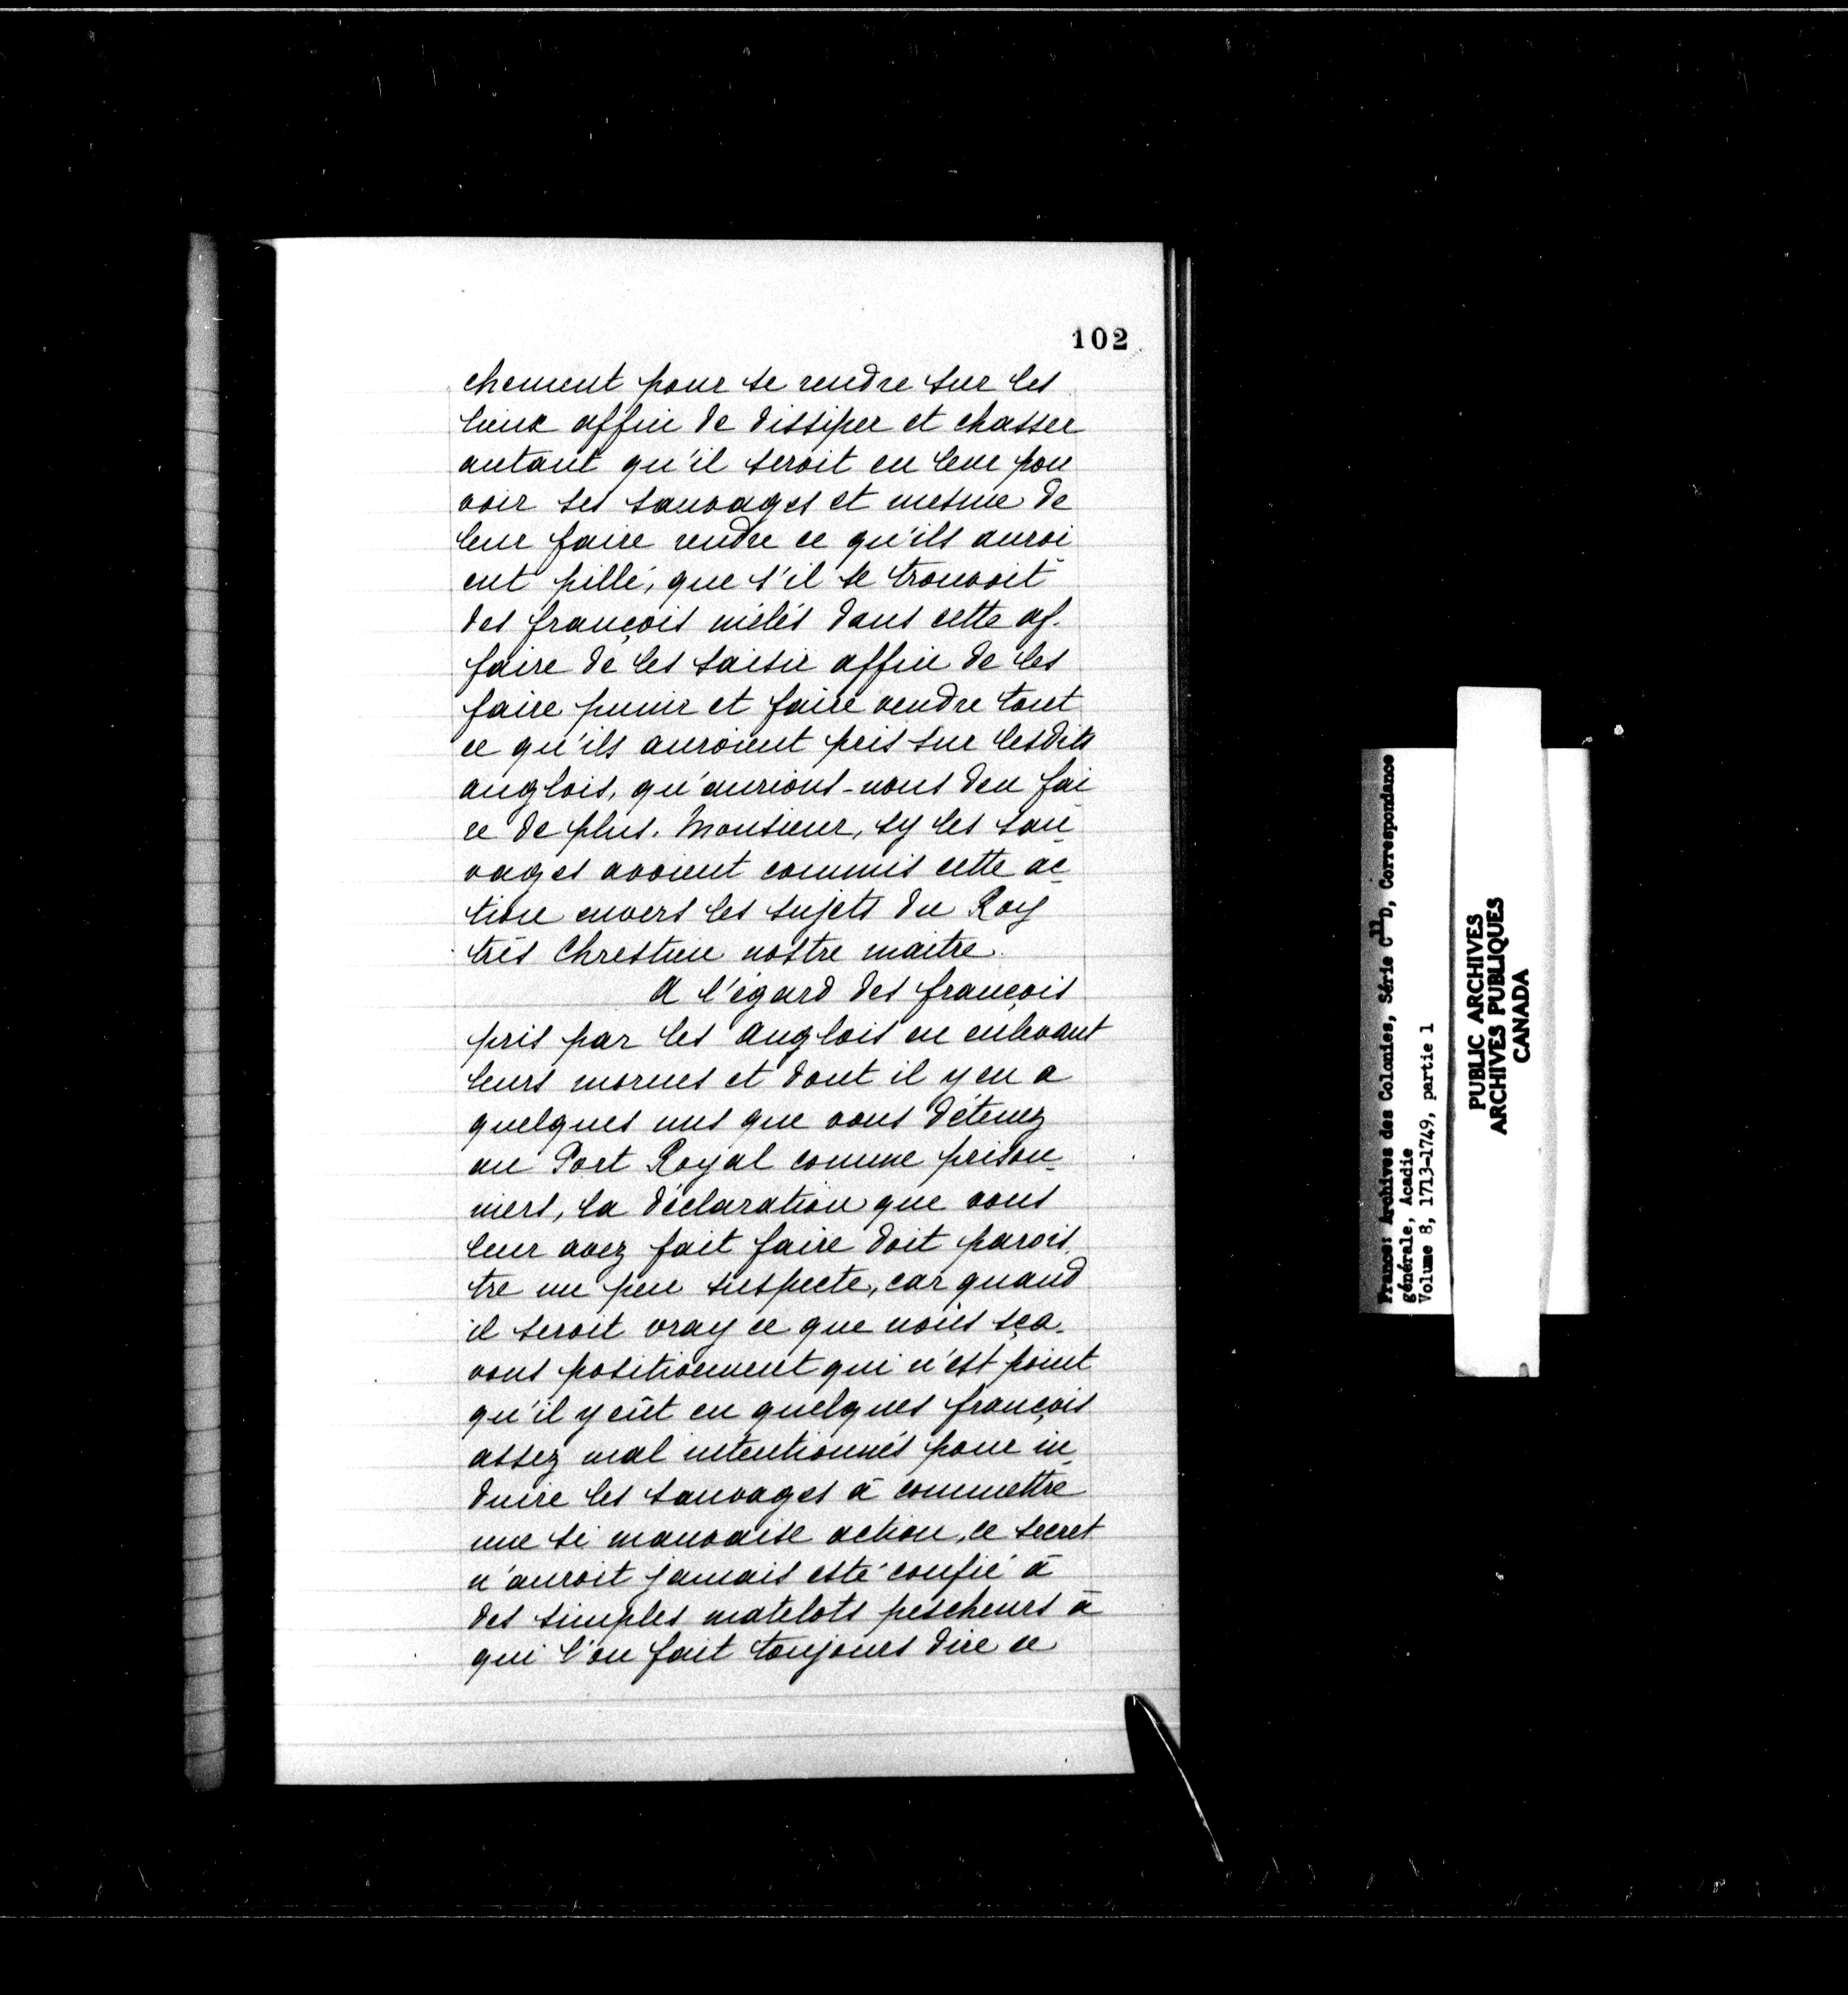 102
chement pour se rendre sur les
lieux affin de dissiper et chasser
autant qu'il seroit en leur pou
voir ses sauvages et mesme de
leur faire rendre ce qu'ils auroi
ent pillé, que s'il se trouvoit
des françois mélés dans cette af-
faire de les saisir affin de les
faire punir et faire rendre tout
ce qu'ils auroient pris sur lesdits
anglois, qu'aurions-nous deu fai
re de plus. Monsieur, sy les sau
vages avoient commis cette ac
tion envers les sujets du Roy
très Chrestien nostre maitre.
A l'égard des françois
pris par les anglois en enlevant
leurs morues et dont il y en a
quelques uns que vous détenez
au Port Royal comme prison-
niers, la déclaration que vous
leur avez fait faire doit parois
tre un peu suspecte, car quand
il seroit vray ce que nous sça-
vons positivement qui n'est point
qu'il y eût eu quelques françois
assez mal intentionnés pour in
duire les sauvages à commettre
une si mauvaise action, ce secret
n'auroit jamais esté confié à
des simples matelots pescheurs à
qui l'on fait toujours dire ce
France: Archives des Colonies, Série C11D, Correspondance
générale, Acadie
Volume 8, 1713-1749, partie 1
PUBLIC ARCHIVES
ARCHIVES PUBLIQUES
CANADA